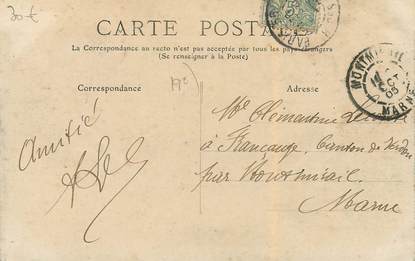 30 €
CARTE POSTALE
La Correspondance au recto n'est pas acceptée par tous les pays étrangers
(Se renseigner à la Poste)
Correspondance
Adresse
Amitié
Mlle Clémentine
à
Canton de
par Montmirail
Marne
MONTMIRAIL
MARNE